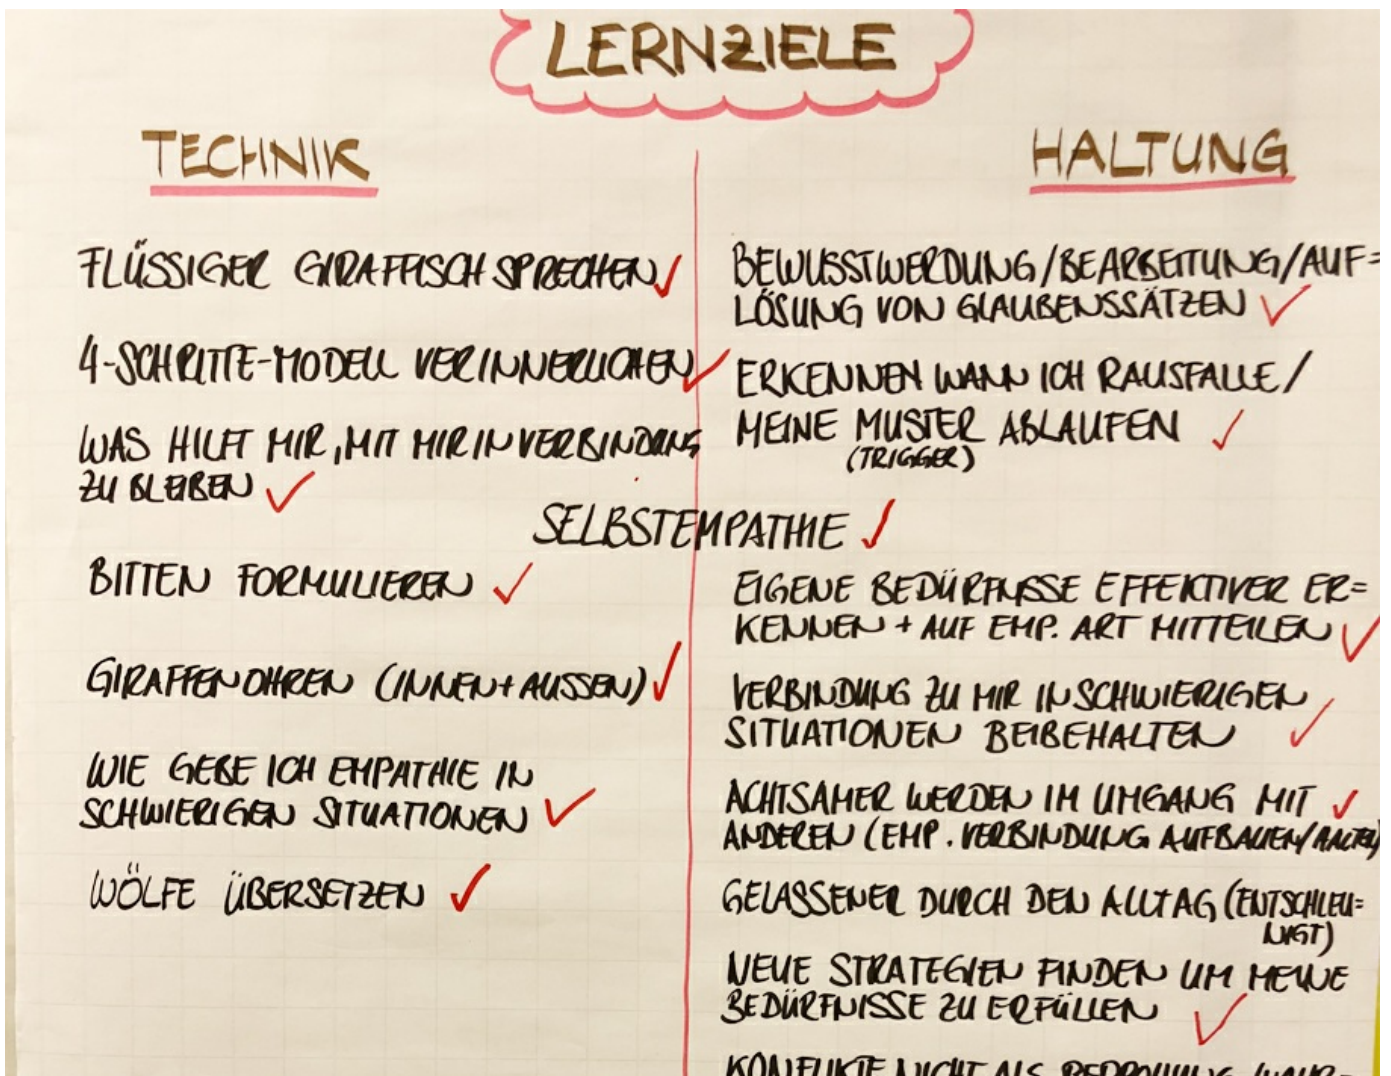 LERNZIELE
TECHNIK
FLÜSSIGER GIRAFFISCH SPRECHEN
4-SCHRITTE-MODELL VERINNERLICHEN
WAS HILFT MIR, MIT MIR IN VERBINDUNG
ZU BLEIBEN
SELBSTEMPATHIE
BITTEN FORMULIEREN
GIRAFFENOHREN (INNEN + AUSSEN)
WIE GEBE ICH EMPATHIE IN
SCHWIERIGEN SITUATIONEN
WÖLFE ÜBERSETZEN
HALTUNG
BEWUSSTWERDUNG/BEARBEITUNG/AUF=
LÖSUNG VON GLAUBENSSÄTZEN
ERKENNEN WANN ICH RAUSFALLE/
MEINE MUSTER ABLAUFEN
(TRIGGER)
EIGENE BEDÜRFNISSE EFFEKTIVER ER=
KENNEN + AUF EMP. ART MITTEILEN
VERBINDUNG ZU MIR IN SCHWIERIGEN
SITUATIONEN BEIBEHALTEN
ACHTSAMER WERDEN IM UMGANG MIT
ANDEREN (EMP. VERBINDUNG AUFBAUEN/HALTEN)
GELASSENER DURCH DEN ALLTAG (ENTSCHLEU=
NIGT)
NEUE STRATEGIEN FINDEN UM MEINE
BEDÜRFNISSE ZU ERFÜLLEN
KONFLIKTE NICHT ALS BEDROHUNG WAHR=